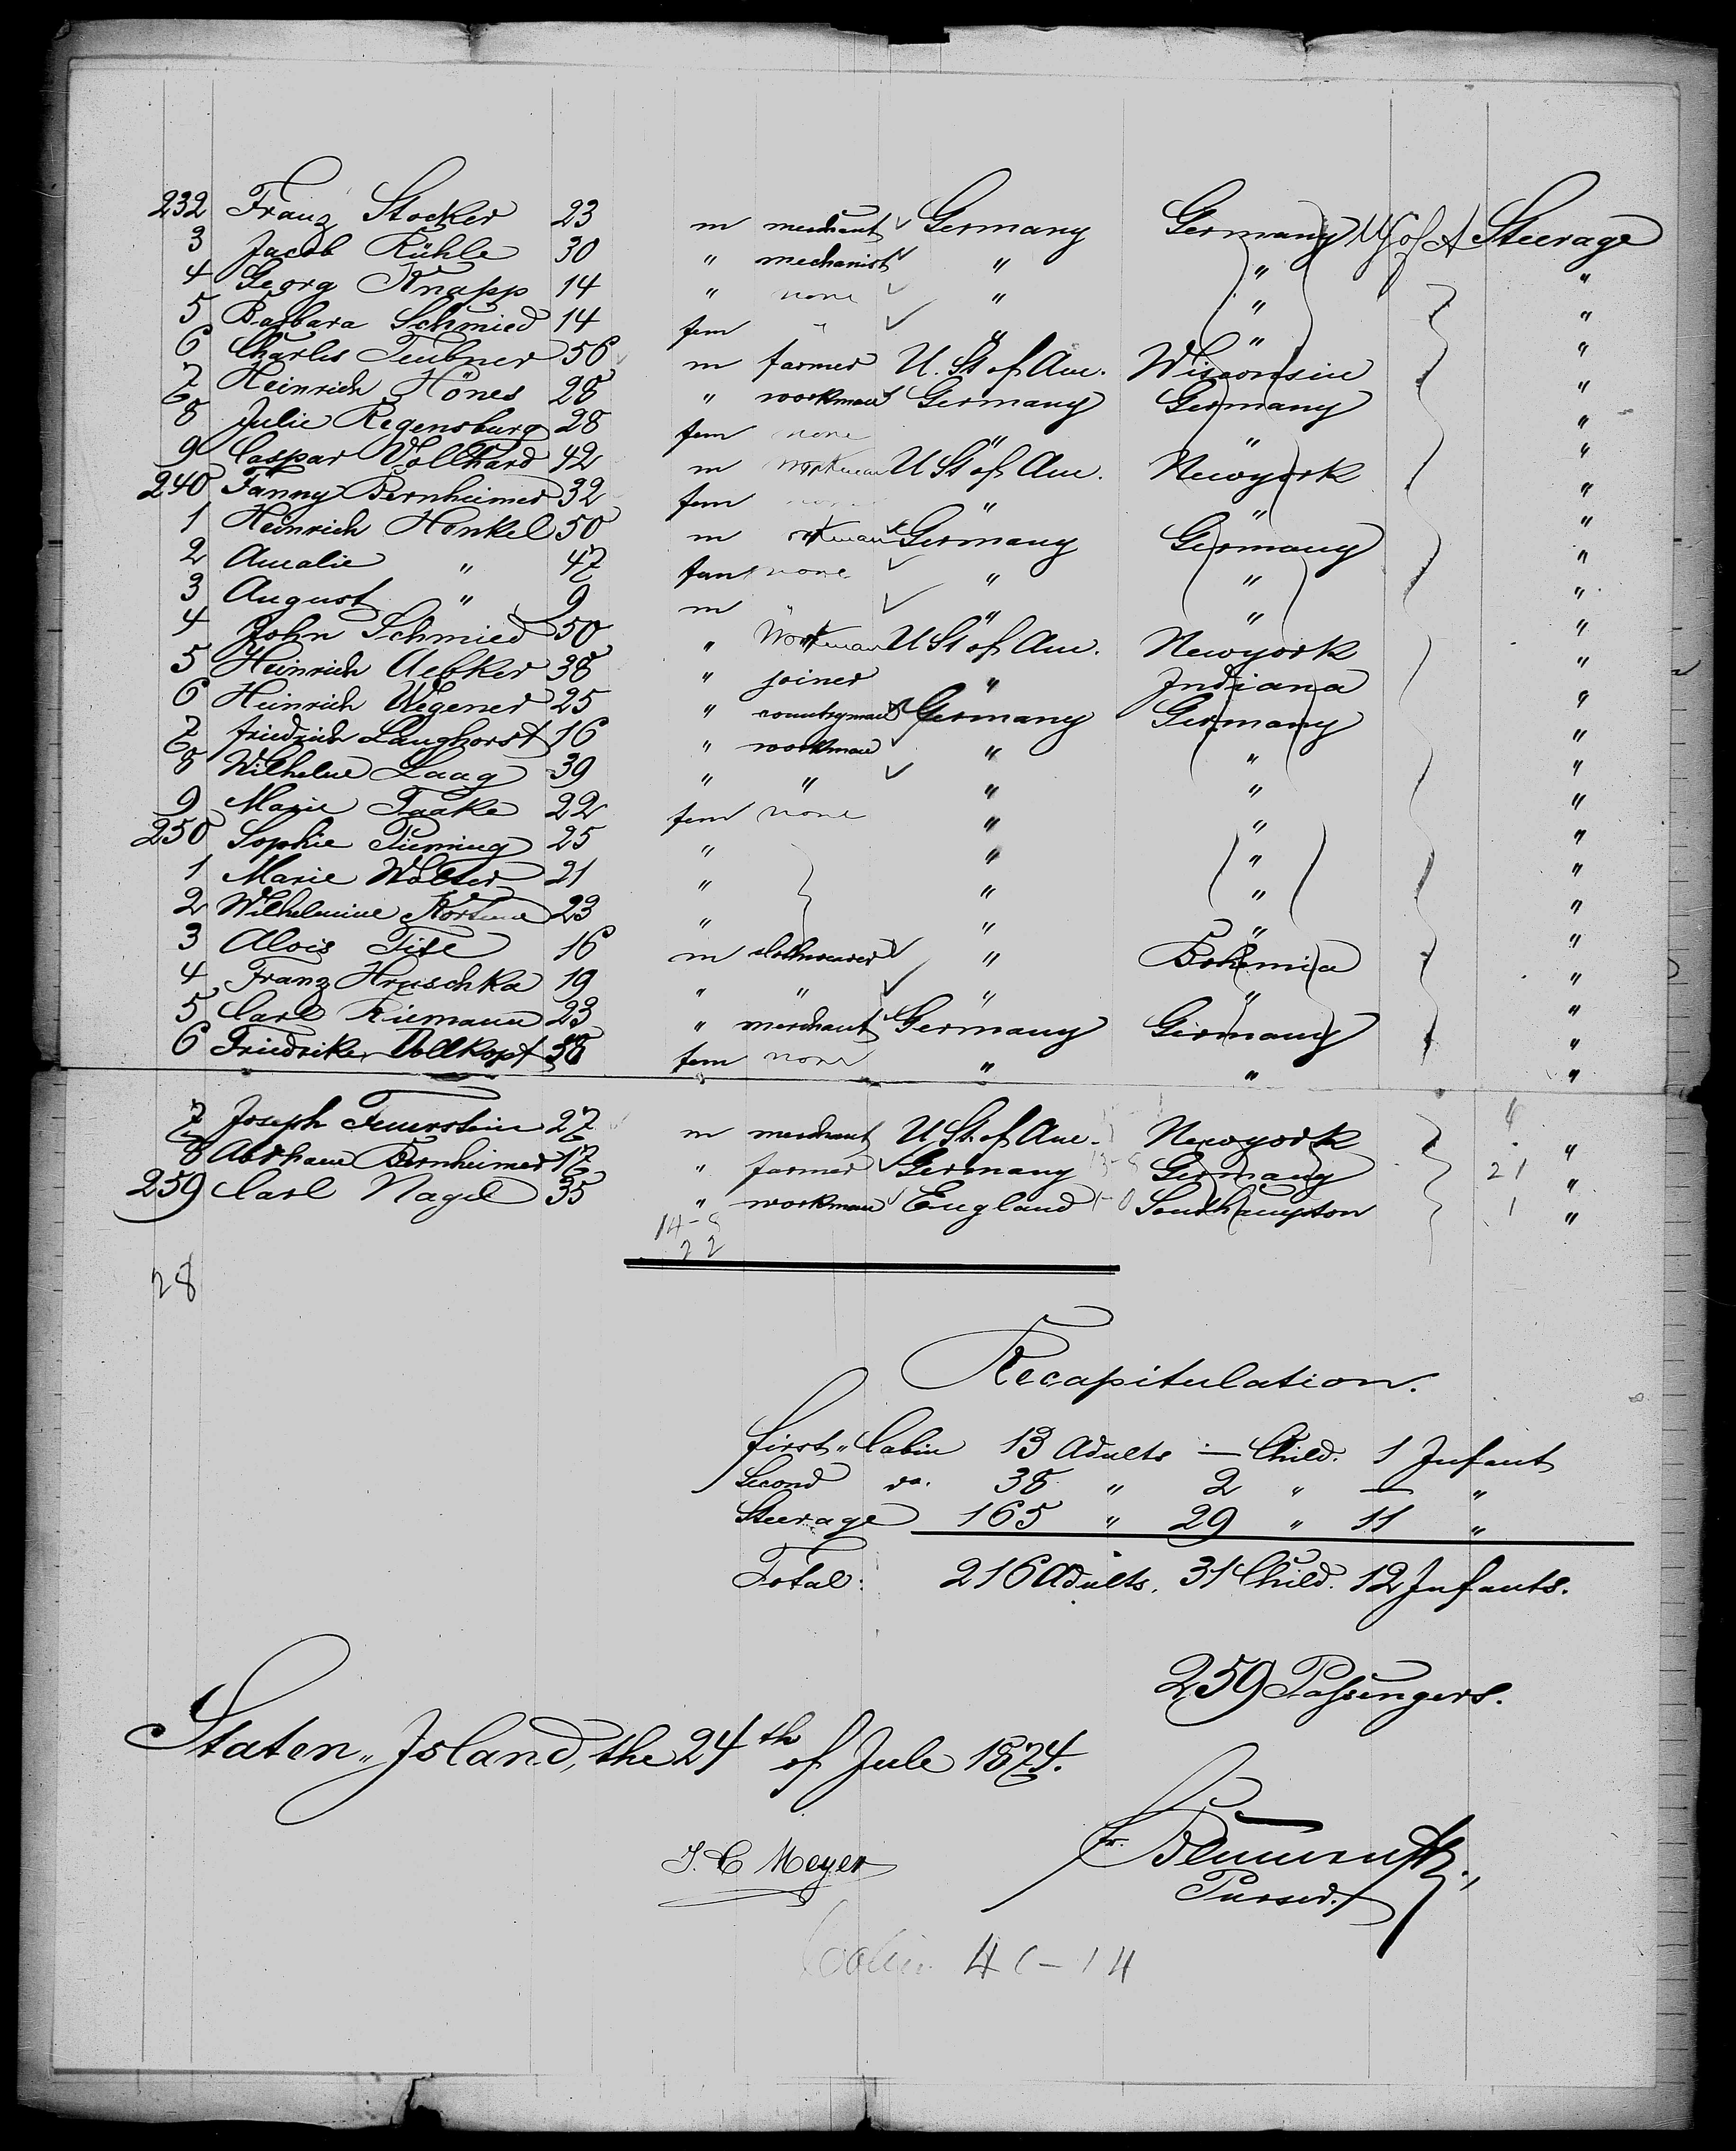 232 Franz Stocker 23 m merchant Germany Germany U S of A Steerage
3 Jacob Rühle 30 " mechanist " " "
4 Georg Knapp 14 " none " " "
5 Barbara Schmied 14 fem " " " "
6 Charles Teubner 56 m farmer U. St of Am. Wisconsin "
7 Heinrich Hönes 28 " workman Germany Germany "
8 Julie Regensburg 28 fem none " " "
9 Caspar Vollhard 42 m workman U St of Am. Newyork "
240 Fanny Bernheimer 32 fem " " "
1 Heinrich Honkel 50 m workman Germany Germany "
2 Amalie " 47 fem none " " "
3 August " 9 m " " " "
4 John Schmied 50 " Workman U St of Am. Newyork "
5 Heinrich Uebker 38 " joiner " Indiana "
6 Heinrich Wegener 25 " countryman Germany Germany "
7 friedrich Langhorst 16 " workman " " "
8 Wilhelm Laag 39 " " " " "
9 Marie Taake 22 fem none " " "
250 Sophie 25 " " " "
1 Marie Wolter 21 " " " "
2 Wilhelmine 23 " " " "
3 Alois 16 m clothweaver " Bohemia "
4 Franz Hruschka 19 " " " " "
5 Carl Riemann 23 " merchant Germany Germany "
6 Friedrike Vollkopf 58 fem none " " "
7 Joseph Feuerstein 27 m merchant U St. of Am. Newyork "
8 Abrham Bernheimer 17 " farmer Germany Germany 21 "
259 Carl Nagel 35 " workman England Southampton 1 "
14-
22
28
Recapitulation.
first " Cabin 13 Adults — Child. 1 Infant
Second do. 38 " 2 " — "
Steerage 165 " 29 " 11 "
Total: 216 Adults. 31 Child. 12 Infants.
259 Passengers.
Staten " Island, the 24th of Jule 1874.
J. C Meyer
Purser.